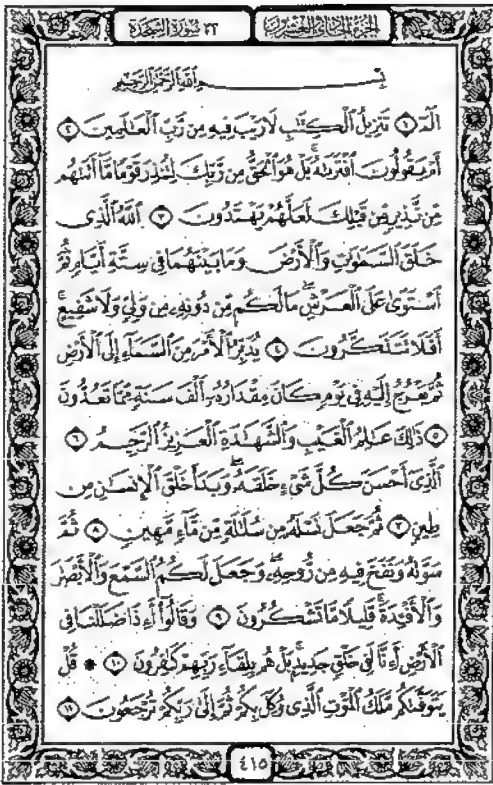 ٣٢ سُورَةُ السَّجْدَةِ
الجُزْءُ الحَادِي وَالعِشْرُونَ
بِسْمِ اللَّهِ الرَّحْمَٰنِ الرَّحِيمِ
الٓمٓ ١ تَنزِيلُ ٱلْكِتَٰبِ لَا رَيْبَ فِيهِ مِن رَّبِّ ٱلْعَٰلَمِينَ ٢
أَمْ يَقُولُونَ ٱفْتَرَىٰهُ ۚ بَلْ هُوَ ٱلْحَقُّ مِن رَّبِّكَ لِتُنذِرَ قَوْمًا مَّآ أَتَىٰهُم
مِّن نَّذِيرٍ مِّن قَبْلِكَ لَعَلَّهُمْ يَهْتَدُونَ ٣ ٱللَّهُ ٱلَّذِى
خَلَقَ ٱلسَّمَٰوَٰتِ وَٱلْأَرْضَ وَمَا بَيْنَهُمَا فِى سِتَّةِ أَيَّامٍ ثُمَّ
ٱسْتَوَىٰ عَلَى ٱلْعَرْشِ ۖ مَا لَكُم مِّن دُونِهِۦ مِن وَلِىٍّ وَلَا شَفِيعٍ ۚ
أَفَلَا تَتَذَكَّرُونَ ٤ يُدَبِّرُ ٱلْأَمْرَ مِنَ ٱلسَّمَآءِ إِلَى ٱلْأَرْضِ
ثُمَّ يَعْرُجُ إِلَيْهِ فِى يَوْمٍ كَانَ مِقْدَارُهُۥٓ أَلْفَ سَنَةٍ مِّمَّا تَعُدُّونَ
٥ ذَٰلِكَ عَٰلِمُ ٱلْغَيْبِ وَٱلشَّهَٰدَةِ ٱلْعَزِيزُ ٱلرَّحِيمُ ٦
ٱلَّذِىٓ أَحْسَنَ كُلَّ شَىْءٍ خَلَقَهُۥ ۖ وَبَدَأَ خَلْقَ ٱلْإِنسَٰنِ مِن
طِينٍ ٧ ثُمَّ جَعَلَ نَسْلَهُۥ مِن سُلَٰلَةٍ مِّن مَّآءٍ مَّهِينٍ ٨ ثُمَّ
سَوَّىٰهُ وَنَفَخَ فِيهِ مِن رُّوحِهِۦ ۖ وَجَعَلَ لَكُمُ ٱلسَّمْعَ وَٱلْأَبْصَٰرَ
وَٱلْأَفْـِٔدَةَ ۚ قَلِيلًا مَّا تَشْكُرُونَ ٩ وَقَالُوٓا۟ أَءِذَا ضَلَلْنَا فِى
ٱلْأَرْضِ أَءِنَّا لَفِى خَلْقٍ جَدِيدٍۭ ۚ بَلْ هُم بِلِقَآءِ رَبِّهِمْ كَٰفِرُونَ ١٠ ۞ قُلْ
يَتَوَفَّىٰكُم مَّلَكُ ٱلْمَوْتِ ٱلَّذِى وُكِّلَ بِكُمْ ثُمَّ إِلَىٰ رَبِّكُمْ تُرْجَعُونَ ١١
٤١٥